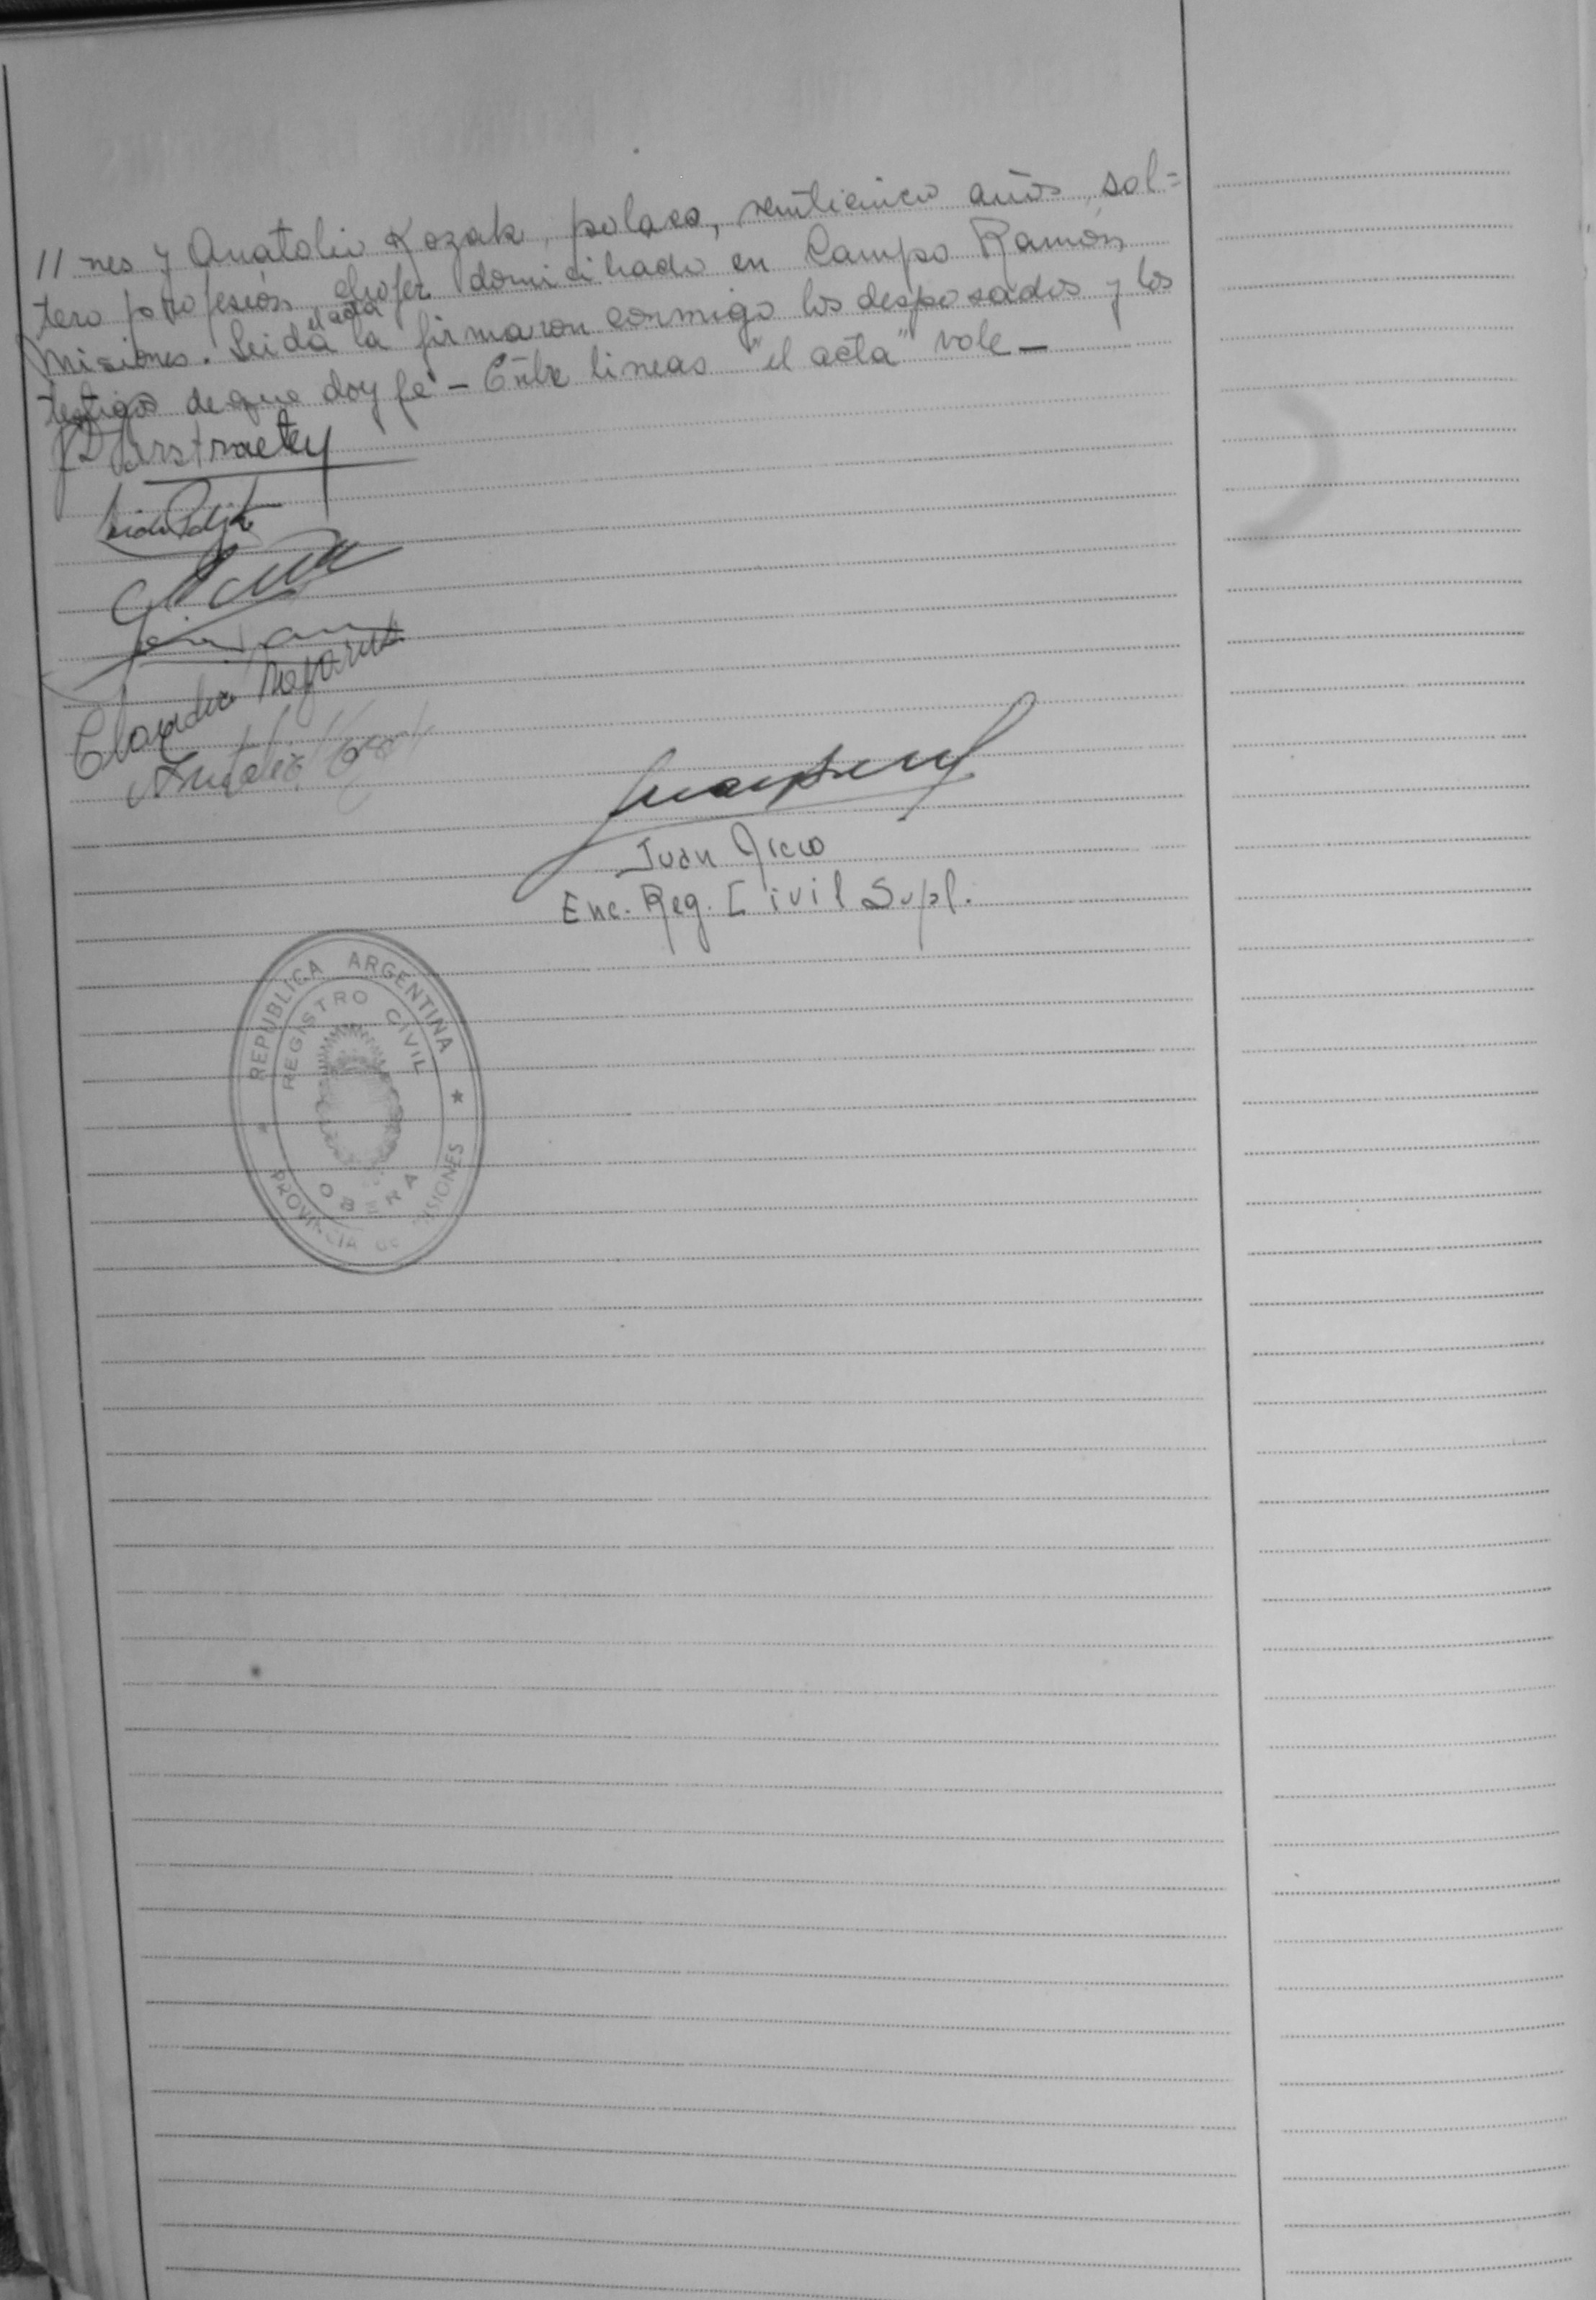 // nes y Anatolio Kozak, polaco, veinticinco años, sol=
tero profesión chofer domiciliado en Campo Ramón
el acta
Misiones. Leida la firmaron conmigo los desposados y los
testigos de que doy fe - Entre lineas "el acta" vale -
Claudio
Anatolio Kozak
Juan
Enc. Reg. Civil Supl.
REPUBLICA ARGENTINA
REGISTRO CIVIL
OBERA
PROVINCIA DE MISIONES